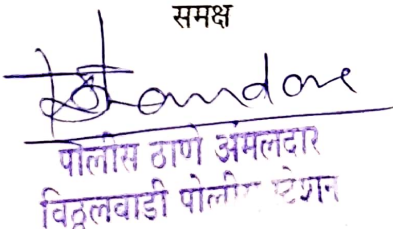 समक्ष
पोलीस ठाणे अंमलदार
विठ्ठलवाडी पोलीस स्टेशन